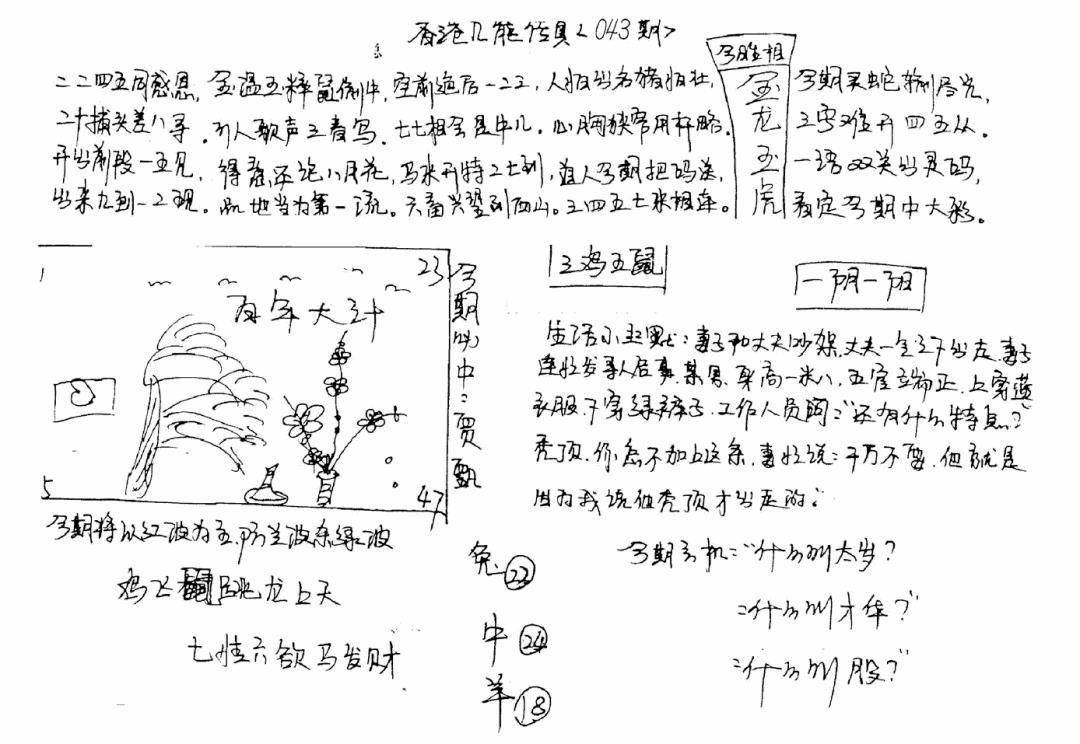 香港几能传真<043期>
今期生相
金龙玉虎
二二四五同感恩，金温玉粹鼠偷牛，空前绝后一二三，人怕出名猪怕壮，
二十摘头差八寻。引人歌声三春写。七七相合是中几。心胸狭窄用杆略。
开出前段一五见，得意还说八月花，马来开特二七到，道人今期把码送，
出来九到一二现。此地当为第一流。天南兴望到西山。三四五七来相连。
今期买蛇输得光，
三零难开四五从。
一语双关出灵码，
看定今期中大彩。
1
23
百年大计
5
47
今期必中：贾甄
三鸡五鼠
一阴一阳
生活小幽默：妻子和丈夫吵架，丈夫一气之下出走，妻子
连忙发寻人启事，某男，身高一米八，五官端正，上穿蓝
衣服，下穿绿裤子，工作人员问："还有什么特点？"
秃顶，你怎不加上这条，妻忙说：千万不要，他就是
因为我说他秃顶才出走的。
今期将以红波为主，防兰波杀绿波
鸡飞鼠跳龙上天
七情六欲马发财
兔㉒
牛㉔
羊⑱
今期玄机："什么叫太岁？
：什么叫才华？"
：什么叫股？"